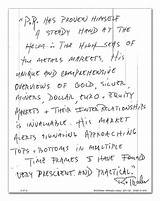 "P.Q. HAS PROVEN HIMSELF
A STEADY HAND AT THE
HELM IN THE HIGH SEAS OF
THE METALS MARKETS. HIS
UNIQUE AND COMPREHENSIVE
OVERVIEWS OF GOLD, SILVER,
BONDS, DOLLAR, EURO & EQUITY
MARKETS & THEIR INTERRELATIONSHIPS
IS INVALUABLE. HIS MARKET
ALERTS SIGNALING APPROACHING
TOPS & BOTTOMS IN MULTIPLE
TIME FRAMES I HAVE FOUND
VERY PRESCIENT AND PRACTICAL."